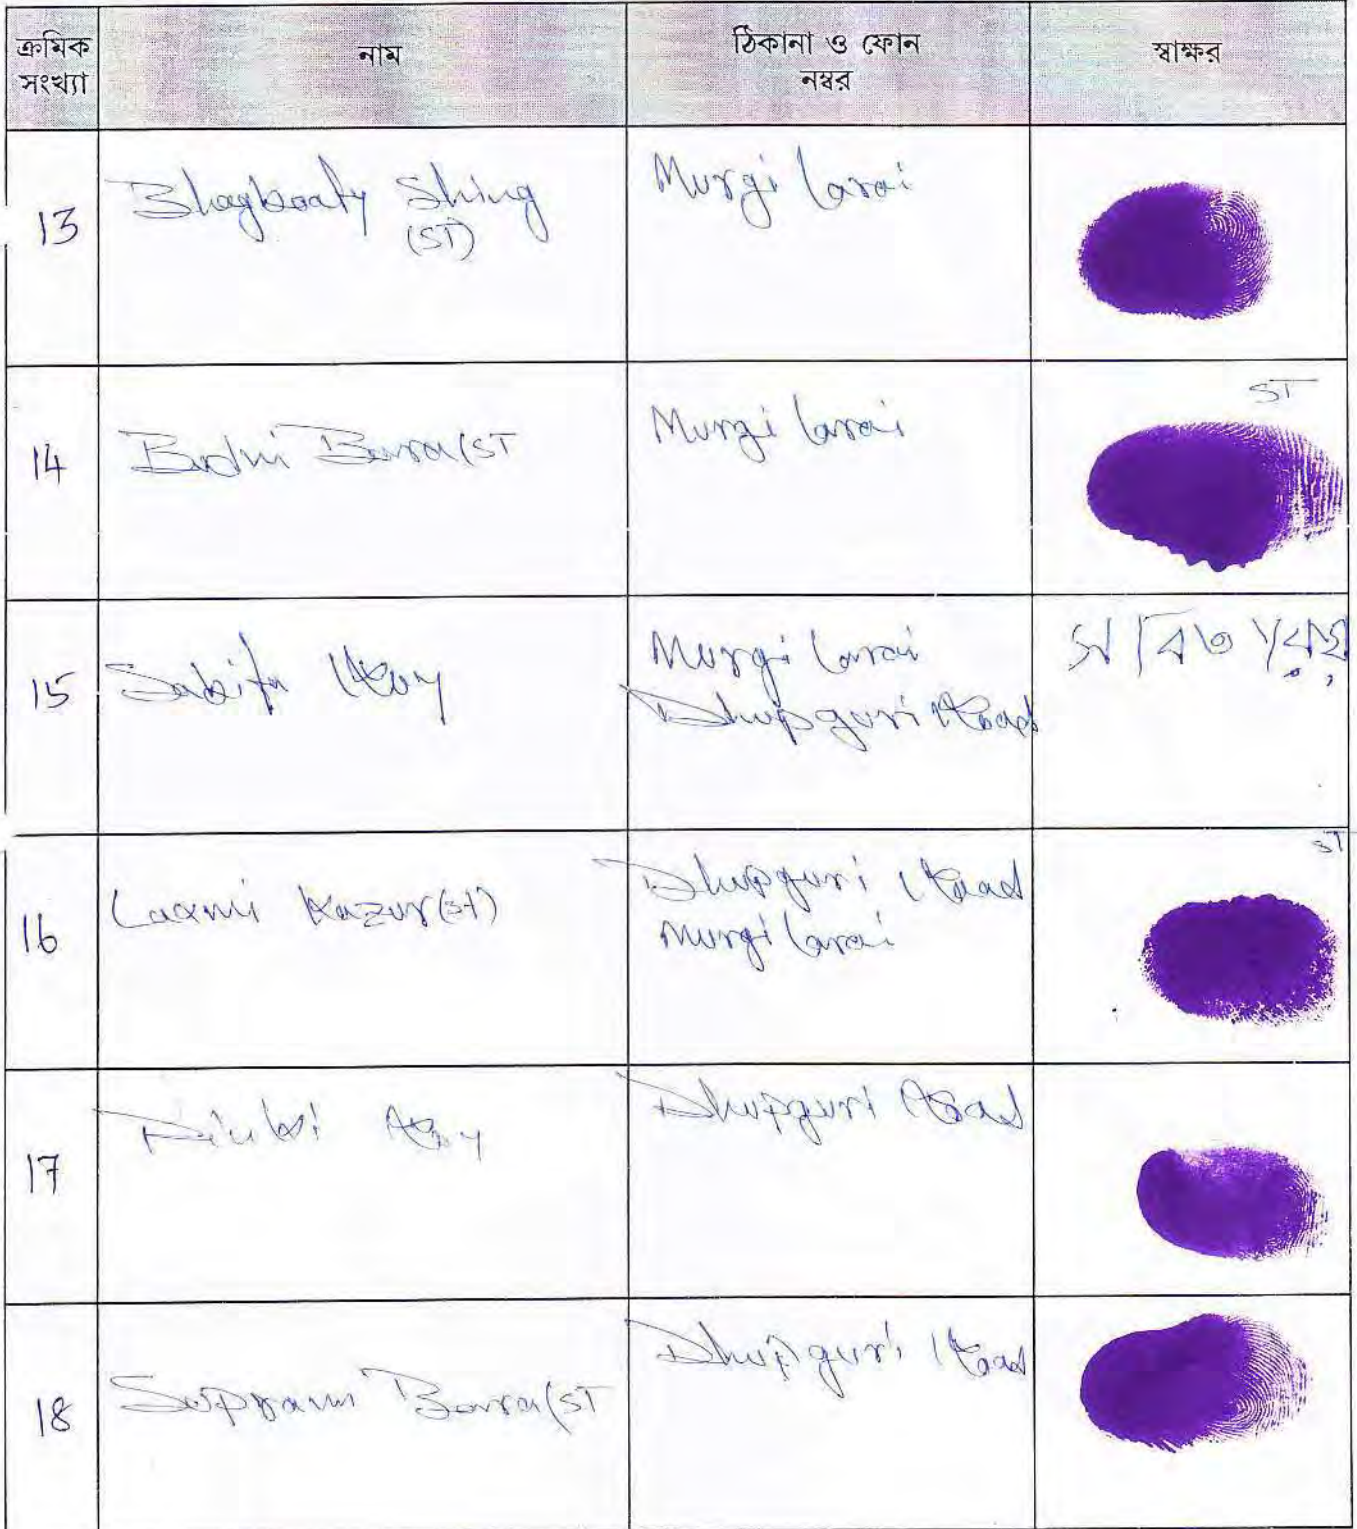 ক্রমিক সংখ্যা নাম ঠিকানা ও ফোন নম্বর স্বাক্ষর
13 Bhagboaty Shing Murgi larai
(ST)
14 Budni Bara(ST Murgi larai ST
15 Sabita Roy Murgi larai
Dhupguri Road
16 Laxmi Kazur(ST) Dhupguri Road ST
Murgi larai
17 Roy Dhupguri Road
18 Bara(ST Dhupguri Road